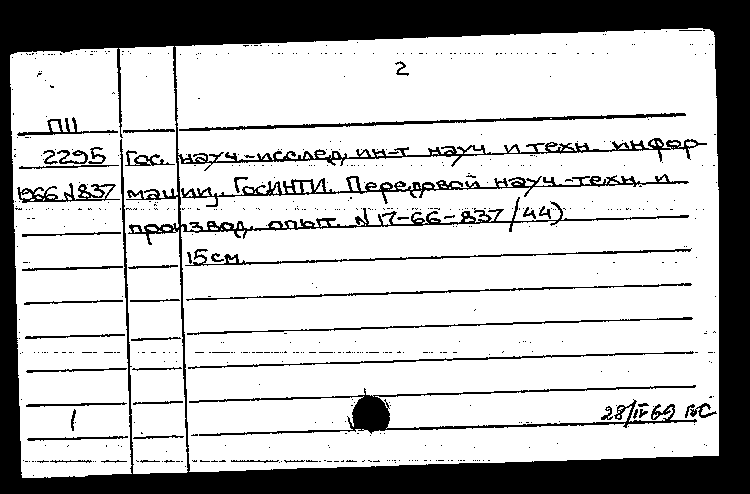 2
П11
2295 Гос. науч.-исслед. ин-т науч. и техн. инфор-
1966 N837 мации, ГосИНТИ. Передовой науч.-техн. и
производ. опыт. N 17-66-837/44)
15 см.
1
28/IV 69 ВС